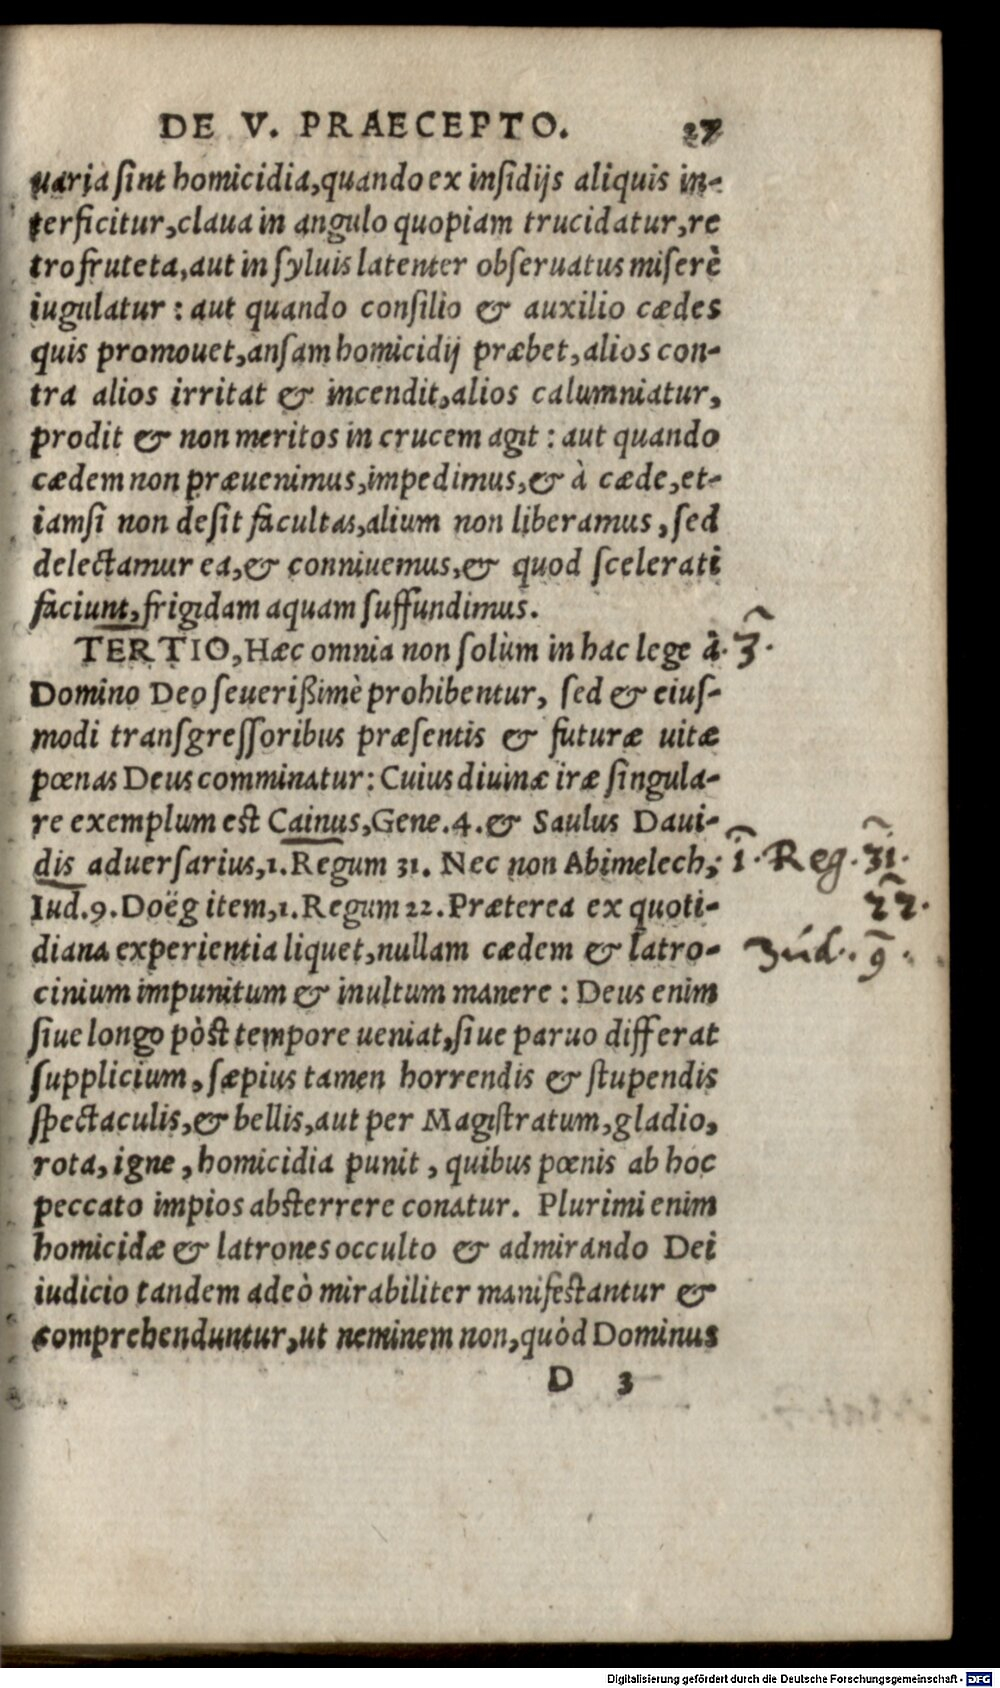 DE V. PRAECEPTO. 27
uaria sint homicidia, quando ex insidijs aliquis in-
terficitur, claua in angulo quopiam trucidatur, re
tro fruteta, aut in syluis latenter obseruatus miserè
iugulatur : aut quando consilio & auxilio cædes
quis promouet, ansam homicidij præbet, alios con-
tra alios irritat & incendit, alios calumniatur,
prodit & non meritos in crucem agit : aut quando
cædem non præuenimus, impedimus, & à cæde, et-
iamsi non desit facultas, alium non liberamus, sed
delectamur ea, & conniuemus, & quod scelerati
faciunt, frigidam aquam suffundimus.
TERTIO, Hæc omnia non solùm in hac lege à ·3·
Domino Deo seuerißimè prohibentur, sed & eius-
modi transgressoribus præsentis & futuræ uitæ
pœnas Deus comminatur : Cuius diuinæ iræ singula-
re exemplum est Cainus, Gene. 4. & Saulus Daui-
dis aduersarius, 1. Regum 31. Nec non Abimelech, 1. Reg. 31.
Iud. 9. Doëg item, 1. Regum 22. Præterea ex quoti- 22.
diana experientia liquet, nullam cædem & latro- Iúd. 9.
cinium impunitum & inultum manere : Deus enim
siue longo pòst tempore ueniat, siue paruo differat
supplicium, sæpius tamen horrendis & stupendis
spectaculis, & bellis, aut per Magistratum, gladio,
rota, igne, homicidia punit, quibus pœnis ab hoc
peccato impios absterrere conatur. Plurimi enim
homicidæ & latrones occulto & admirando Dei
iudicio tandem adeò mirabiliter manifestantur &
comprehenduntur, ut neminem non, quòd Dominus
D 3
Digitalisierung gefördert durch die Deutsche Forschungsgemeinschaft - DFG